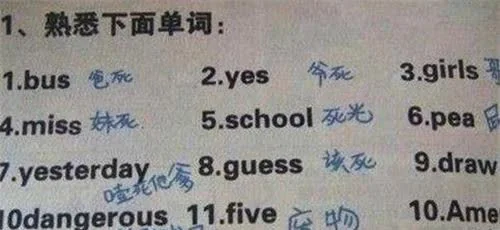 1、熟悉下面单词:
1.bus 爸死 2.yes 爷死 3.girls
4.miss 妹死 5.school 死光 6.pea
7.yesterday 噎死他爹 8.guess 该死 9.draw
10dangerous 11.five 废物 10.Ame